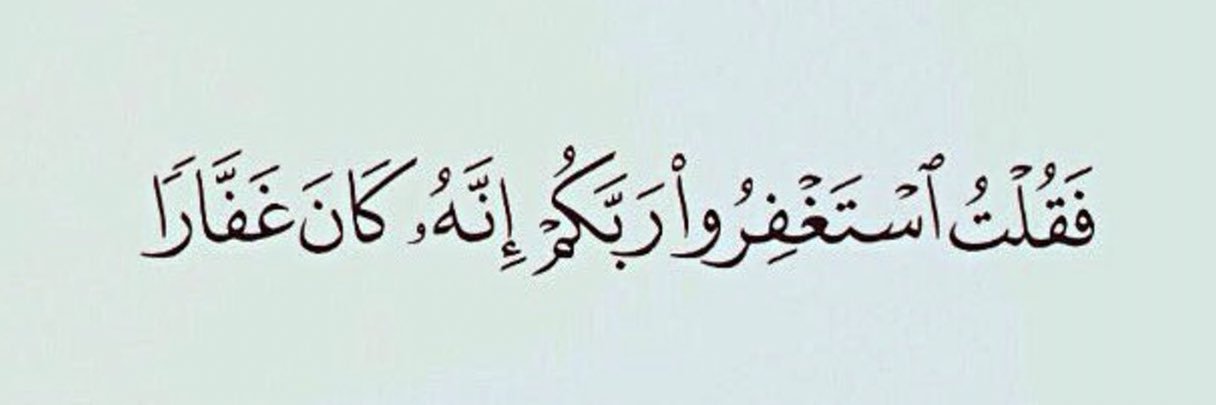 فَقُلْتُ ٱسْتَغْفِرُوا۟ رَبَّكُمْ إِنَّهُۥ كَانَ غَفَّارًا